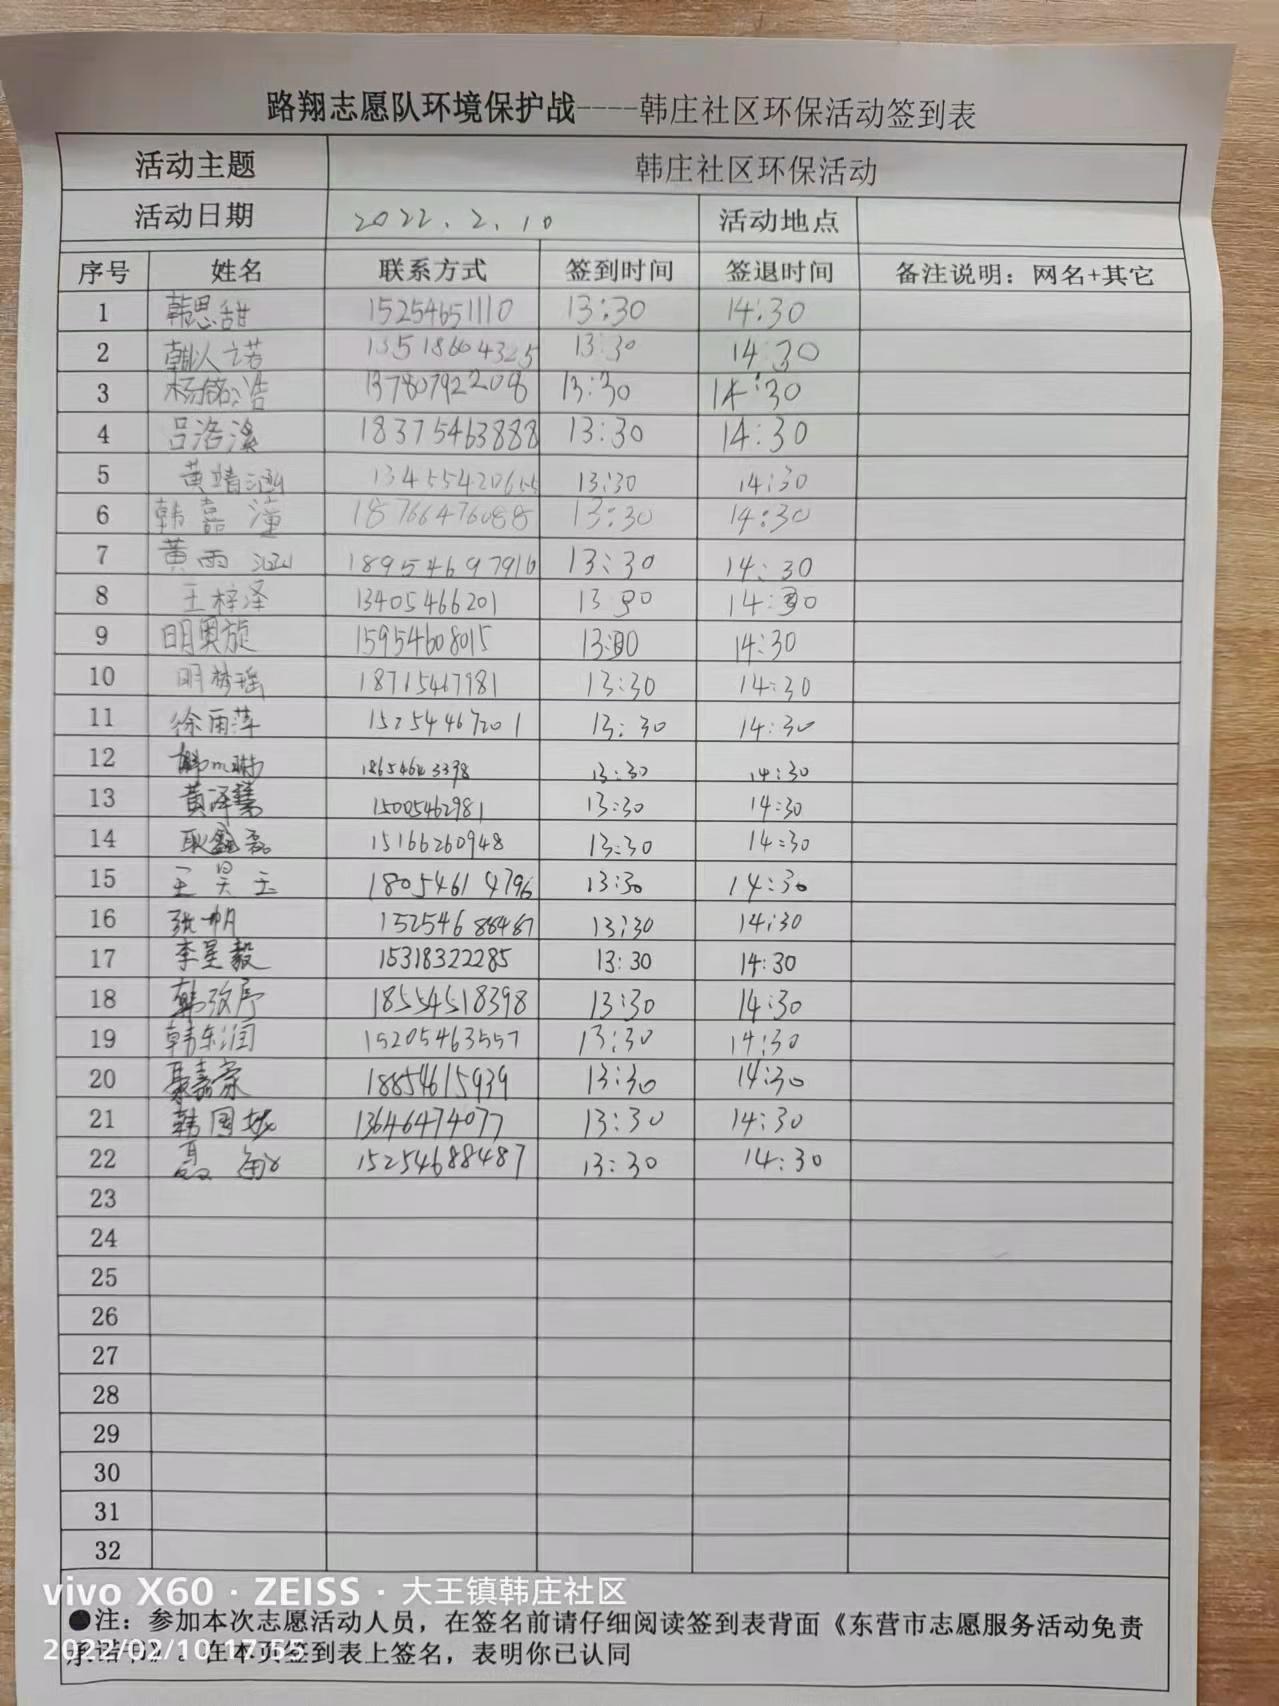 路翔志愿队环境保护战----韩庄社区环保活动签到表
活动主题 韩庄社区环保活动
活动日期 2022.2.10 活动地点
序号 姓名 联系方式 签到时间 签退时间 备注说明：网名+其它
1 韩思甜 15254651110 13:30 14:30
2 13518604325 13:30 14:30
3 杨铭浩 13780792208 13:30 14:30
4 吕洛溪 18375463888 13:30 14:30
5 黄靖涵 13455420655 13:30 14:30
6 韩嘉潼 18766476088 13:30 14:30
7 黄雨涵 18954697916 13:30 14:30
8 王梓泽 13405466201 13:30 14:30
9 明奥旋 15954608015 13:30 14:30
10 明梦瑶 18715467981 13:30 14:30
11 徐雨萍 15254467201 13:30 14:30
12 13:30 14:30
13 15005462981 13:30 14:30
14 耿鑫磊 15166260948 13:30 14:30
15 王昊玉 18054614796 13:30 14:30
16 张帅 13:30 14:30
17 李星毅 15318322285 13:30 14:30
18 18554518398 13:30 14:30
19 韩东润 15205463557 13:30 14:30
20 聂嘉豪 18854615939 13:30 14:30
21 韩国城 13646474077 13:30 14:30
22 聂敏 15254688487 13:30 14:30
23
24
25
26
27
28
29
30
31
32
vivo X60 · ZEISS · 大王镇韩庄社区
●注：参加本次志愿活动人员，在签名前请仔细阅读签到表背面《东营市志愿服务活动免责
2022/02/10 17:56
承诺书》。在本页签到表上签名，表明你已认同